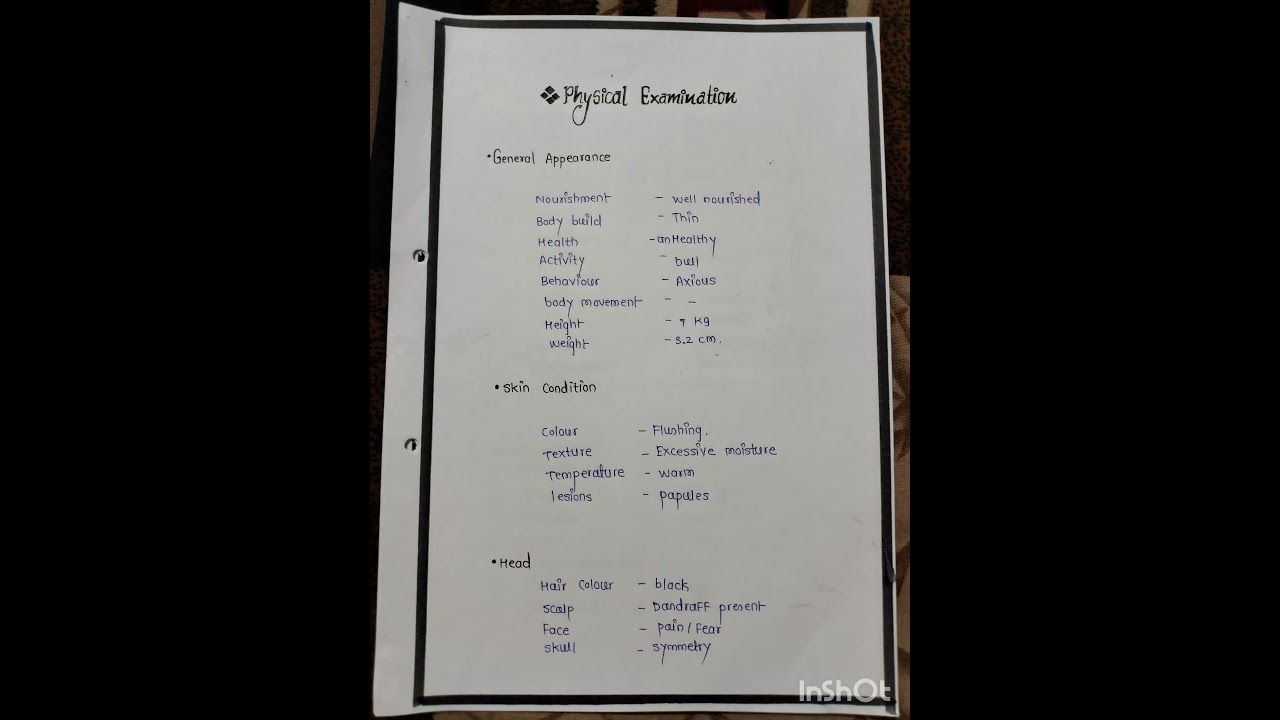 ❖ Physical Examination
• General Appearance
Nourishment - well nourished
Body build - Thin
Health - unHealthy
Activity - bull
Behaviour - Axious
body movement - -
Height - 7 Kg
weight - 3.2 cm.
• Skin Condition
Colour - Flushing.
Texture - Excessive moisture
Temperature - warm
lesions - papules
• Head
Hair Colour - black
Scalp - Dandraff present
Face - pain / Fear
Skull - symmetry
InShOt